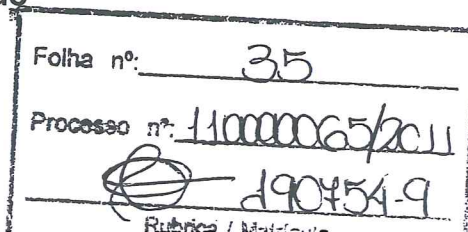 Folha nº: 35
Processo nº: 110000065/2011
190754-9
Rubrica / Matrícula